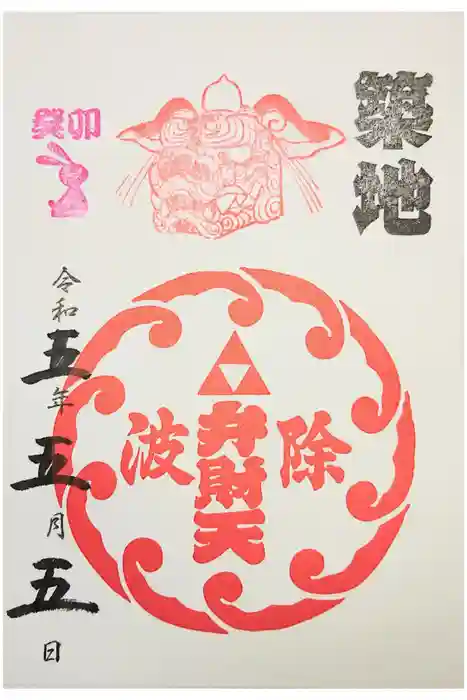 築地
癸卯
除
弁財天
波
令和五年五月五日